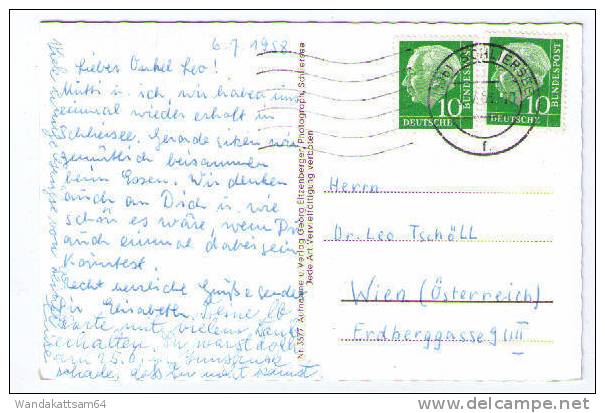 6.7.1958
Lieber Onkel Leo!
Mutti u. ich, wir haben uns
einmal wieder erholt in
Schliersee. Gerade sitzen wir
gemütlich beisammen
beim Essen. Wir denken
auch an Dich u. wie
schön es wäre, wenn Du
auch einmal dabei sein
könntest.
Recht herzliche Grüße sendet
Dir Elisabeth. Deine lb
Karte mit vielem Dank
erhalten. Du warst doch
am 25.6. in Innsbruck
schade, dass Du nicht kamst
Nr. 3577 Aufnahme u. Verlag Georg Eitzenberger, Photograph, Schliersee
Jede Art Vervielfältigung verboten
10
DEUTSCHE
BUNDESPOST
10
DEUTSCHE
BUNDESPOST
SCHLIERSEE
f
Herrn
Dr. Leo Tschöll
Wien (Österreich)
Erdberggasse 9/III
Wandakattsam64
delcampe.net